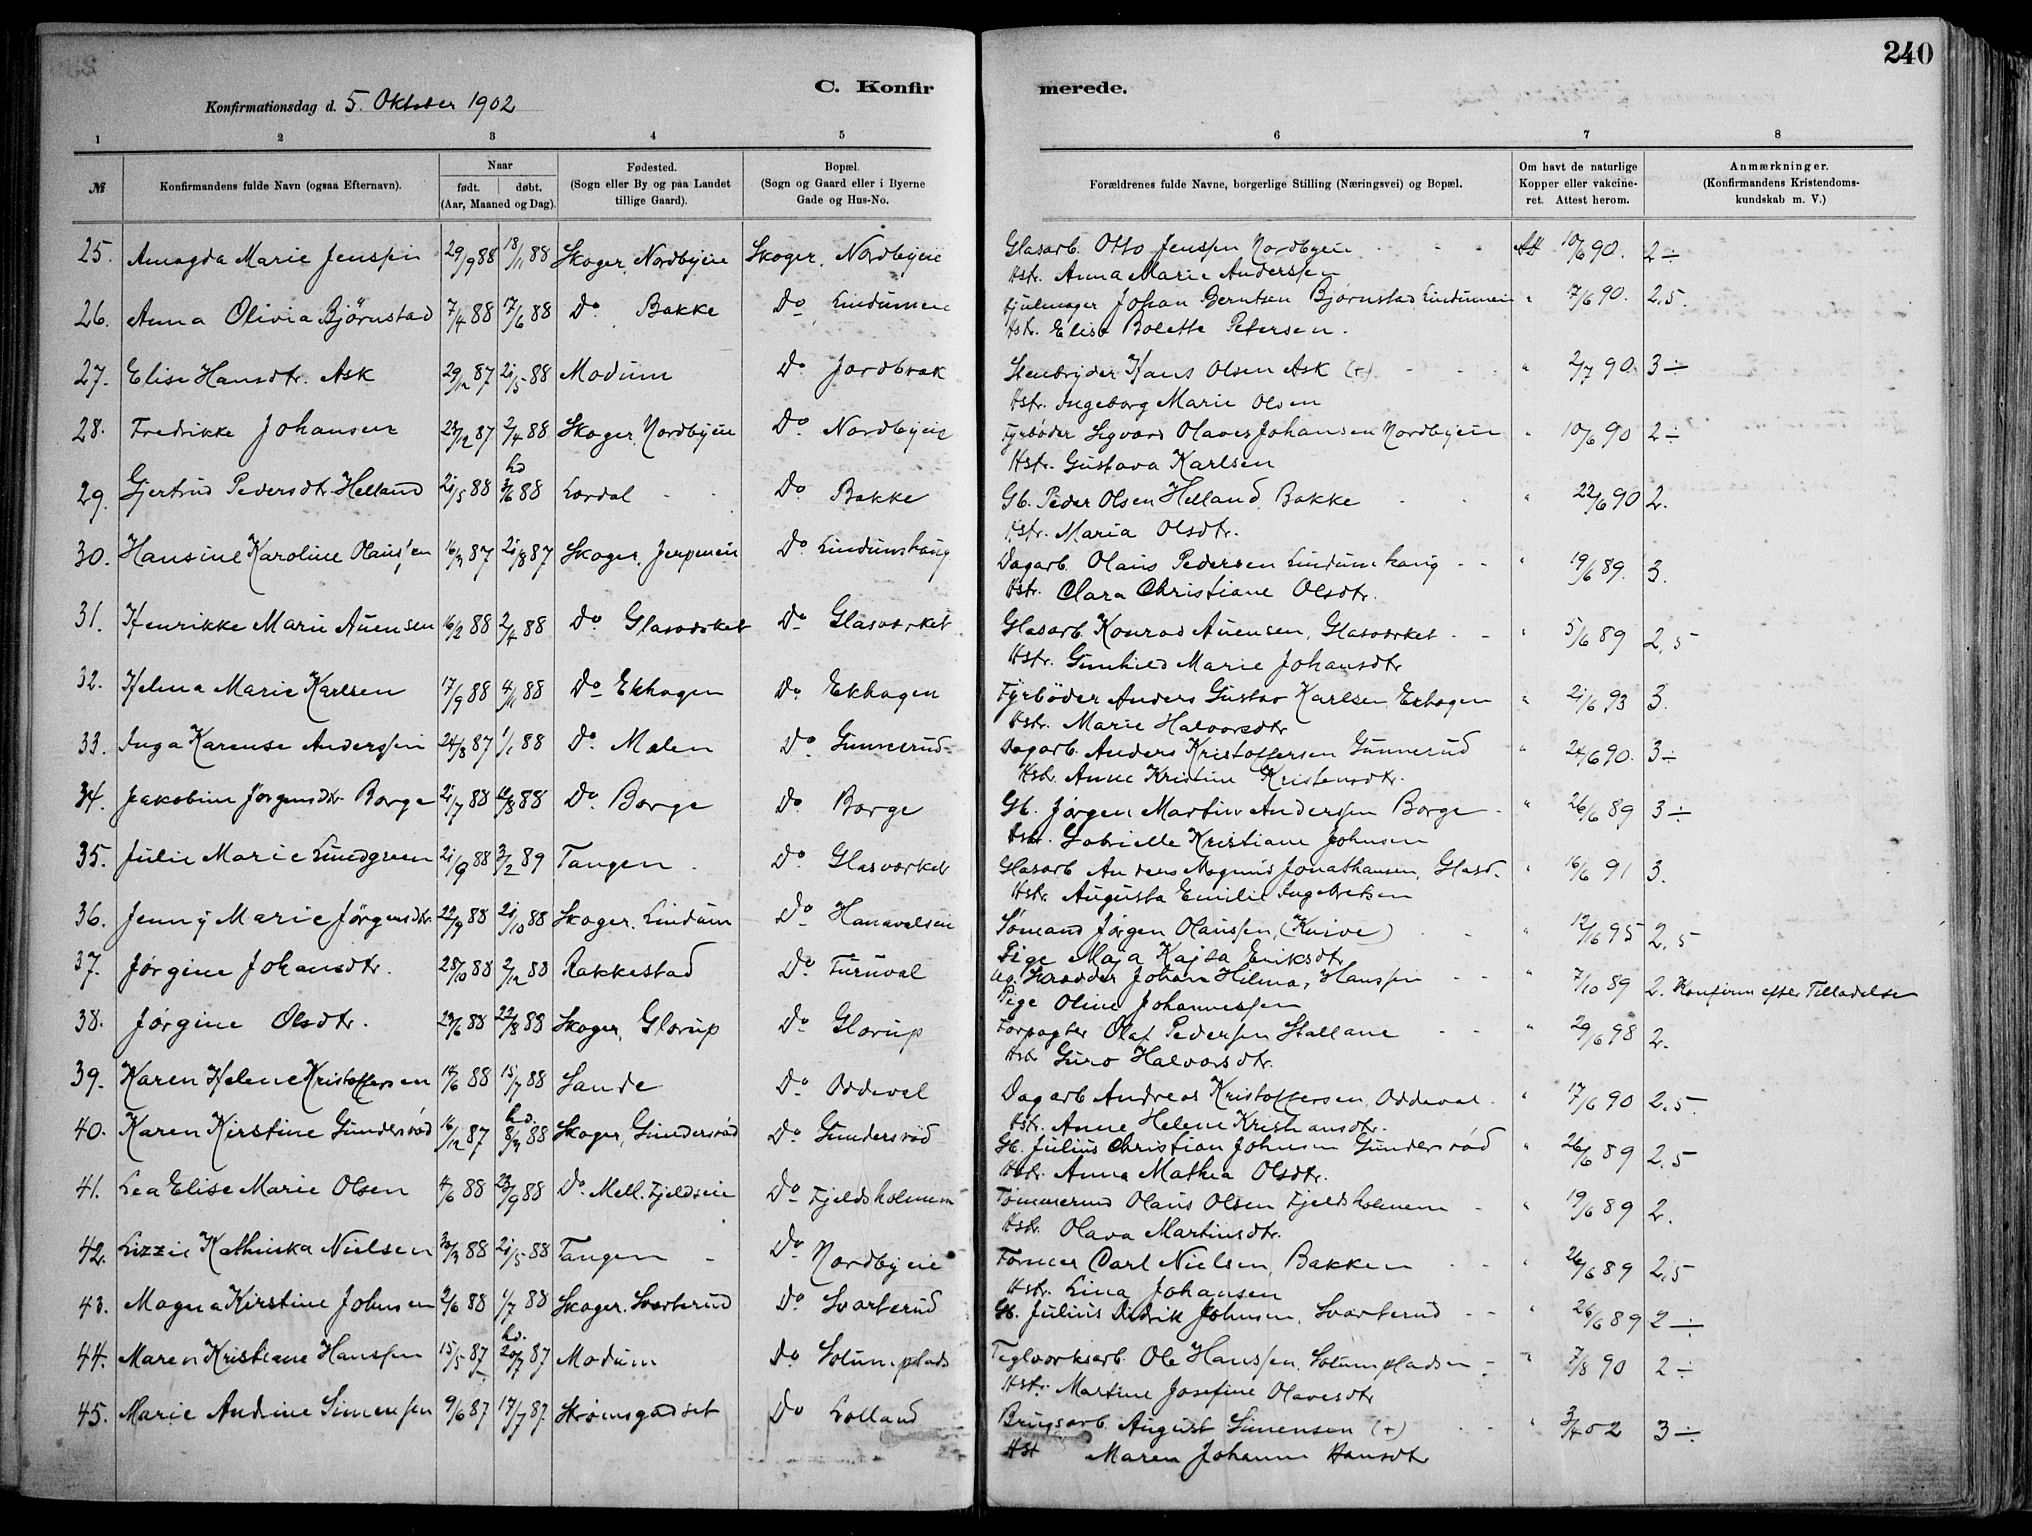 240
C. Konfir
merede.
Konfirmationsdag d. 5. Oktober 1902
1 2 3 4 5 6 7 8
№
Konfirmandens fulde Navn (ogsaa Efternavn).
Naar
født. døbt.
(Aar, Maaned og Dag).
Fødested.
(Sogn eller By og paa Landet
tillige Gaard).
Bopæl.
(Sogn og Gaard eller i Byerne
Gade og Hus-No.
Forældrenes fulde Navne, borgerlige Stilling (Næringsvei) og Bopæl.
Om havt de naturlige
Kopper eller vakcine-
ret. Attest herom.
Anmærkninger.
(Konfirmandens Kristendoms-
kundskab m. V.)
25. Amagda Marie Jenssen 29/9 88 18/11 88 Skoger, Nordbyeie Skoger, Nordbyeie Glasarb. Otto Jenssen Nordbyeie - - - Att 10/6 90. 2÷
Hstr. Anna Marie Anderssen
26. Anna Olivia Bjørnstad 7/4 88 17/6 88 Do Bakke Do Lindumeie Hjulmager Johan Berntsen Bjørnstad Lindumeie " 7/6 90. 2,5.
Hstr. Elise Bolette Petersen.
27. Elise Hansdtr. Ask 29/12 87 21/5 88 Modum Do Jordbræk Stenbryder Hans Olsen Ask (+) - - - " 2/7 90. 3÷
Hstr. Ingeborg Marie Olsen
28. Fredrikke Johansen 23/12 87 2/4 88 Skoger, Nordbyeie Do Nordbyeie Fyrbøder Sigvard Olaves Johansen Nordbyeie " 10/6 90 2÷
Hstr. Gustava Karlsen
29. Gjertrud Pedersdtr. Helland 21/5 88 hd 3/6 88 Lærdal - - Do Bakke Gb. Peder Olsen Helland, Bakke - - " 22/6 90 2.
Hstr. Maria Olsdtr.
30. Hansine Karoline Olaussen 16/3 87 21/8 87 Skoger, Jerpeneie Do Lindumshaug Dagarb. Olaus Pedersen Lindumhaug - - " 19/6 89. 3.
Hstr. Clara Christiane Olsdtr.
31. Henrikke Marie Auensen 16/2 88 2/4 88 Do Glasværket Do Glasværket Glasarb. Konrad Auensen, Glasværket - - " 5/6 89 2,5
Hstr. Gunhild Marie Johansdtr
32. Helma Marie Karlsen 17/9 88 4/11 88 Do Ekhagen Do Ekhagen Fyrbøder Anders Gustav Karlsen Ekhagen " 21/6 93 3.
Hstr. Marie Halvorsdtr
33. Inga Karense Anderssen 24/8 87 1/1 88 Do Mælen Do Gunnerud Dagarb. Anders Kristoffersen Gunnerud " 24/6 90. 3÷
Hstr. Anne Kristine Kristensdtr.
34. Jakobine Jørgensdtr. Borge 21/7 88 88 Do Borge Do Borge Gb. Jørgen Martin Anderssen Borge - " 26/6 89 3÷
Hstr. Gabrielle Kristiane Johnsen
35. Julie Marie Lundgreen 21/9 88 3/2 89 Tangen - Do Glasværket Glasarb Anders Magnus Jonathansen, Glasv. " 16/6 91 3.
Hstr. Augusta Emilie Ingebretsen
36. Jenny Marie Jørgensdtr. 22/9 88 21/10 88 Skoger, Lindum Do Hanavelseie Sømand Jørgen Olaussen, (Knive) - - " 12/10 95 2,5
Pige Maja Kajsa Eriksdtr
37. Jørgine Johansdtr. 28/10 88 2/12 88 Rakkestad Do Furuval Skrædder Johan Hilmar Hanssen - - " 7/10 89 2. Konfirm. efter Tilladelse
Pige Oline Johannessen
38. Jørgine Olsdtr. 23/6 88 22/8 88 Skoger, Glorup Do Glorup Forpagter Olaf Pederssen Stallane - - " 29/6 98 2.
Hstr Guro Halvorsdtr.
39. Karen Helene Kristoffersen 10/6 88 15/7 88 Sande Do Oddeval Dagarb Andreas Kristoffersen, Oddeval - " 17/6 90 2,5.
Hstr. Anne Helene Kristiansdtr.
40. Karen Kirstine Gundersrød 16/12 87 hd. 8/3 88 Skoger, Gundersrød Do Gundersrød Gb. Julius Christian Johnsen Gundersrød " 26/6 89 2,5
Hstr. Anna Mathea Olsdtr.
41. Lea Elise Marie Olsen 4/6 88 23/9 88 Do Mell. Fjeldseie Do Fjeldsholmen Tømmermand Olaus Olsen Fjeldsholmen - " 19/6 89 2.
Hstr. Olava Martinsdtr.
42. Lizzie Kathinka Nielsen 30/3 88 21/5 88 Tangen - Do Nordbyeie Former Carl Nielsen, Bakken - - " 26/6 89 2,5
Hstr. Lina Johansen
43. Magna Kirstine Johnsen 2/6 88 1/7 88 Skoger, Svarterud Do Svarterud Gb. Julius Didrik Johnsen, Svarterud - - " 26/6 89 2÷
44. Maren Kristiane Hanssen 15/5 87 hd. 20/7 87 Modum Do Solumplads Teglværksarb. Ole Hanssen, Solumpladsen - " 7/8 90 2÷
Hstr. Martine Josefine Olavesdtr
45. Marie Andrine Simenssen 9/6 87 17/7 87 Strømsgodset Do Lolland Brugsarb. August Simensen (+) - - " 3/4 02 3÷
Hst Maren Johanne Hansdt